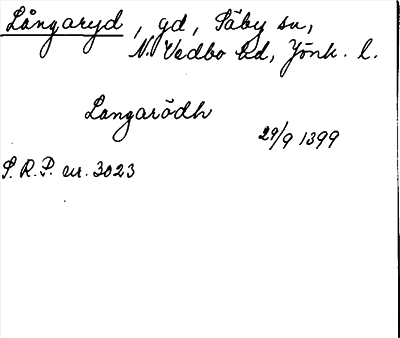 Långaryd, gd, Säby sn,
N. Vedbo hd, Jönk. l.
Langarödh
29/9 1399
S.R.P. nr. 3023